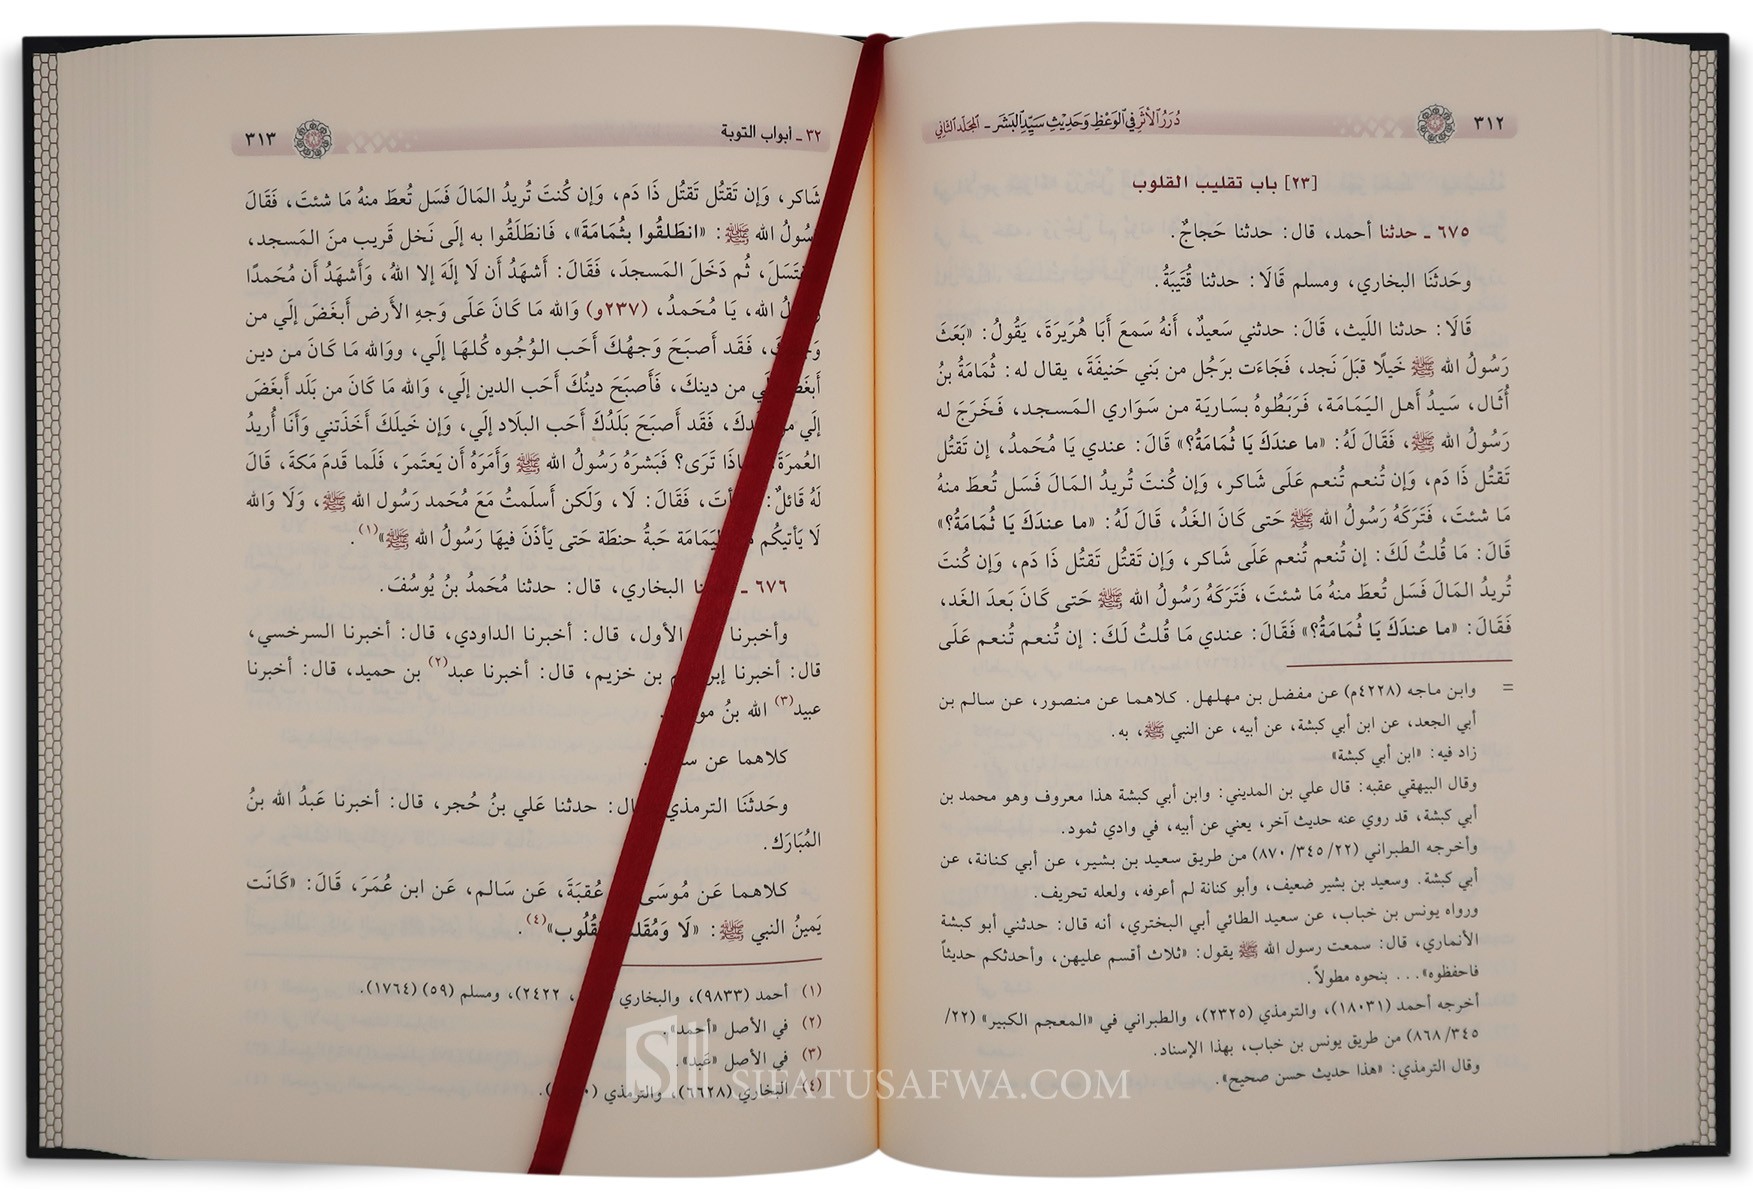 ٣١٢
دُرَرُ الأَثَرِ فِي الوَعْظِ وَحَدِيثِ سَيِّدِ البَشَر - المجلد الثاني
[٢٣] باب تقليب القلوب
٦٧٥ - حدثنا أحمد، قال: حدثنا حَجاجٌ.
وحَدثَنَا البخاري، ومسلم قَالَا: حدثنا قُتَيبَةُ.
قَالَا: حدثنا اللَيث، قَالَ: حدثني سَعِيدٌ، أَنهُ سَمعَ أَبَا هُرَيرَةَ، يَقُولُ: «بَعَثَ
رَسُولُ الله ﷺ خَيلًا قبَلَ نَجد، فَجَاءَت برَجُل من بَني حَنيفَةَ، يقال له: ثُمَامَةُ بنُ
أُثَال، سَيدُ أَهل اليَمَامَة، فَرَبَطُوهُ بسَاريَة من سَوَاري المَسجد، فَخَرَجَ له
رَسُولُ الله ﷺ، فَقَالَ لَهُ: «ما عندَكَ يَا ثُمَامَةُ؟» قَالَ: عندي يَا مُحَمدُ، إن تَقتُل
تَقتُل ذَا دَم، وَإن تُنعم تُنعم عَلَى شَاكر، وَإن كُنتَ تُريدُ المَالَ فَسَل تُعطَ منهُ
مَا شئتَ، فَتَرَكَهُ رَسُولُ الله ﷺ حَتى كَانَ الغَدُ، قَالَ لَهُ: «ما عندَكَ يَا ثُمَامَةُ؟»
قَالَ: مَا قُلتُ لَكَ: إن تُنعم تُنعم عَلَى شَاكر، وَإن تَقتُل تَقتُل ذَا دَم، وَإن كُنتَ
تُريدُ المَالَ فَسَل تُعطَ منهُ مَا شئتَ، فَتَرَكَهُ رَسُولُ الله ﷺ حَتى كَانَ بَعدَ الغَد،
فَقَالَ: «ما عندَكَ يَا ثُمَامَةُ؟» فَقَالَ: عندي مَا قُلتُ لَكَ: إن تُنعم تُنعم عَلَى
= وابن ماجه (٤٢٢٨م) عن مفضل بن مهلهل. كلاهما عن منصور، عن سالم بن
أبي الجعد، عن ابن أبي كبشة، عن أبيه، عن النبي ﷺ، به.
زاد فيه: «ابن أبي كبشة»
وقال البيهقي عقبه: قال علي بن المديني: وابن أبي كبشة هذا معروف وهو محمد بن
أبي كبشة، قد روي عنه حديث آخر، يعني عن أبيه، في وادي ثمود.
وأخرجه الطبراني (٢٢/ ٣٤٥/ ٨٧٠) من طريق سعيد بن بشير، عن أبي كنانة، عن
أبي كبشة. وسعيد بن بشير ضعيف، وأبو كنانة لم أعرفه، ولعله تحريف.
ورواه يونس بن خباب، عن سعيد الطائي أبي البختري، أنه قال: حدثني أبو كبشة
الأنماري، قال: سمعت رسول الله ﷺ يقول: «ثلاث أقسم عليهن، وأحدثكم حديثاً
فاحفظوه»... بنحوه مطولاً.
أخرجه أحمد (١٨٠٣١)، والترمذي (٢٣٢٥)، والطبراني في «المعجم الكبير» (٢٢/
٣٤٥/ ٨٦٨) من طريق يونس بن خباب، بهذا الإسناد.
وقال الترمذي: «هذا حديث حسن صحيح».
٣٢ - أبواب التوبة
٣١٣
شَاكر، وَإن تَقتُل تَقتُل ذَا دَم، وَإن كُنتَ تُريدُ المَالَ فَسَل تُعطَ منهُ مَا شئتَ، فَقَالَ
رَسُولُ الله ﷺ: «انطَلقُوا بثُمَامَةَ»، فَانطَلَقُوا به إلَى نَخل قَريب منَ المَسجد،
فَاغتَسَلَ، ثُم دَخَلَ المَسجدَ، فَقَالَ: أَشهَدُ أَن لَا إلَهَ إلا اللهُ، وَأَشهَدُ أَن مُحَمدًا
رَسُولُ الله، يَا مُحَمدُ، (٢٣٧و) وَالله مَا كَانَ عَلَى وَجهِ الأَرض أَبغَضَ إلَي من
وَجهكَ، فَقَد أَصبَحَ وَجهُكَ أَحَب الوُجُوه كُلهَا إلَي، ووَالله مَا كَانَ من دين
أَبغَضَ إلَي من دينكَ، فَأَصبَحَ دينُكَ أَحَب الدين إلَي، وَالله مَا كَانَ من بَلَد أَبغَضَ
إلَي من بَلَدكَ، فَقَد أَصبَحَ بَلَدُكَ أَحَب البلَاد إلَي، وَإن خَيلَكَ أَخَذَتني وَأَنَا أُريدُ
العُمرَةَ، فَمَاذَا تَرَى؟ فَبَشرَهُ رَسُولُ الله ﷺ وَأَمَرَهُ أَن يَعتَمرَ، فَلَما قَدمَ مَكةَ، قَالَ
لَهُ قَائلٌ: أَصَبَأتَ، فَقَالَ: لَا، وَلَكن أَسلَمتُ مَعَ مُحَمد رَسُول الله ﷺ، وَلَا وَالله
لَا يَأتيكُم منَ اليَمَامَة حَبةُ حنطَة حَتى يَأذَنَ فيهَا رَسُولُ الله ﷺ»(١).
٦٧٦ - حدثنا البخاري، قال: حدثنا مُحَمدُ بنُ يُوسُفَ.
وأخبرنا الأول، قال: أخبرنا الداودي، قال: أخبرنا السرخسي،
قال: أخبرنا إبراهيم بن خزيم، قال: أخبرنا عبد(٢) بن حميد، قال: أخبرنا
عبيد(٣) الله بنُ موسى.
كلاهما عن
وحَدثَنَا الترمذي، قال: حدثنا عَلي بنُ حُجر، قال: أخبرنا عَبدُ الله بنُ
المُبَارَك.
كلاهما عَن مُوسَى بن عُقبَةَ، عَن سَالم، عَن ابن عُمَرَ، قَالَ: «كَانَت
يَمينُ النبي ﷺ: «لَا وَمُقَلب القُلُوب»(٤).
(١) أحمد (٩٨٣٣)، والبخاري ٢٤٢٢)، ومسلم (٥٩) (١٧٦٤).
(٢) في الأصل «أحمد».
(٣) في الأصل «عَبد».
(٤) البخاري (٦٦٢٨)، والترمذي
SIFATUSAFWA.COM